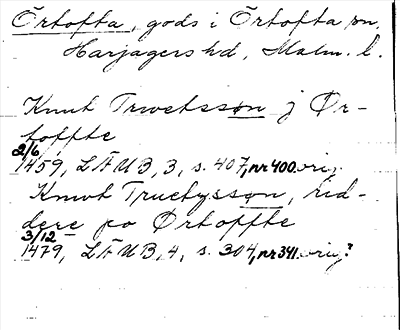 Örtofta, gods i Örtofta sn,
Harjagers hd, Malm. l.
Knut Trwetsson j Ør-
toffte
2/6
1459, LÄUB, 3, s. 407, nr 400 orig.
Knwt Truetysson, rid-
dere po Ørtoffte
3/12
1479, LÄUB, 4, s. 304, nr 341. orig?